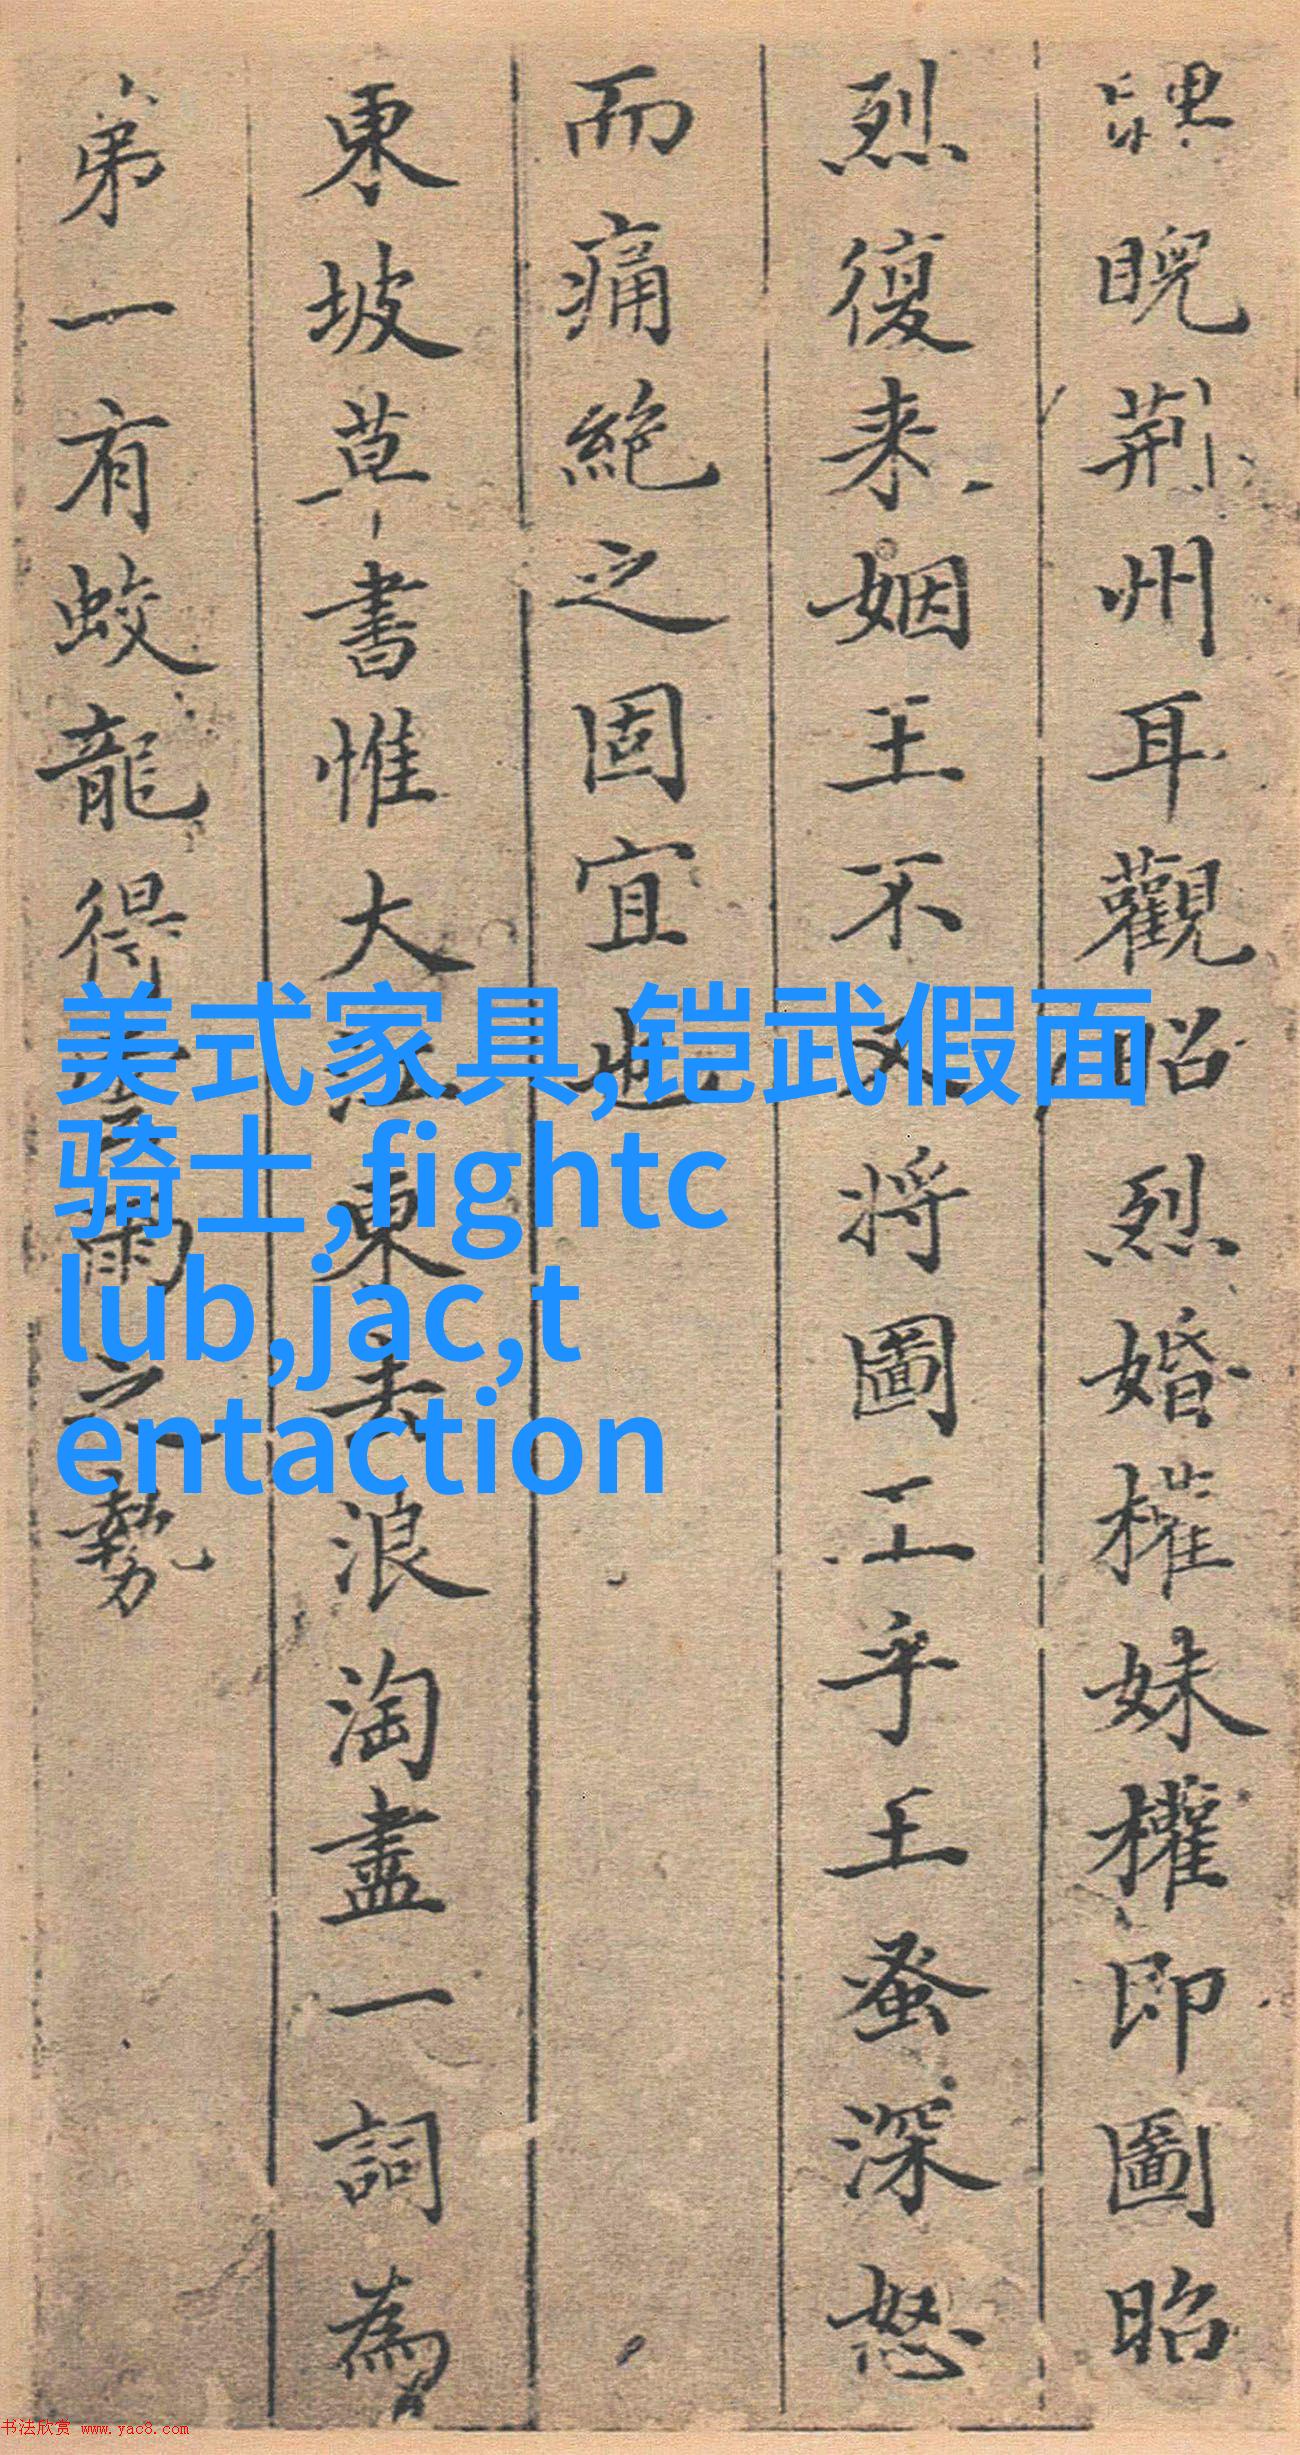 睥睨荊州耳觀昭烈婚權妹權即圖昭
烈復来姻王不又将圖工乎王蚤深怒
而痛絶之固宜也
東坡草書惟大江東去浪淘盡一詞為
弟一有蛟龍得雲雨之勢
美式家具,铠武假面
骑士,fightc
lub,jac,t
entaction
书法欣赏 www.yac8.com